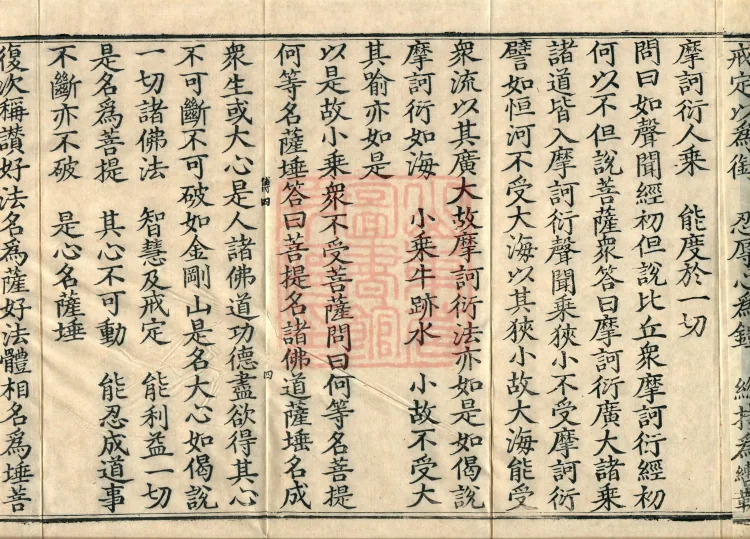 戒定以為銜　忍辱心為鎧
摩訶衍人乘　能度於一切
問曰如聲聞經初但說比丘衆摩訶衍經初
何以不但說菩薩衆答曰摩訶衍廣大諸乘
諸道皆入摩訶衍聲聞乘狹小不受摩訶衍
譬如恒河不受大海以其狹小故大海能受
衆流以其廣大故摩訶衍法亦如是如偈說
摩訶衍如海　小乘牛跡水　小故不受大
其喻亦如是
以是故小乘衆不受菩薩問曰何等名菩提
何等名薩埵答曰菩提名諸佛道薩埵名成
衆生或大心是人諸佛道功德盡欲得其心
不可斷不可破如金剛山是名大心如偈說
一切諸佛法　智慧及戒定　能利益一切
是名為菩提　其心不可動　能忍成道事
不斷亦不破　是心名薩埵
復次稱讃好法名為薩好法體相名為埵菩
四